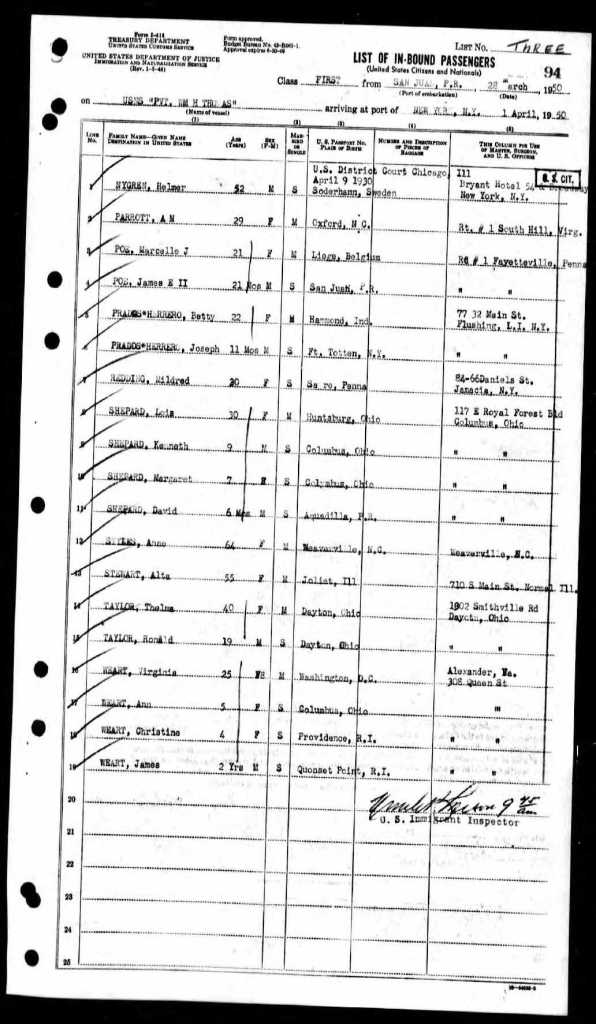 Form I-418
TREASURY DEPARTMENT
UNITED STATES CUSTOMS SERVICE
UNITED STATES DEPARTMENT OF JUSTICE
IMMIGRATION AND NATURALIZATION SERVICE
Form approved.
LIST No. THREE
LIST OF IN-BOUND PASSENGERS
(United States Citizens and Nationals)
94
Class FIRST from SAN JUAN, P.R. 28 March , 1950
(Port of embarkation) (Date)
on USNS "PVT. WM H THOMAS" arriving at port of NEW YORK, N.Y. 1 April, 1950
(Name of vessel)
(1) (2) (3) (4) (5) (6)
LINE No. FAMILY NAME—GIVEN NAME DESTINATION IN UNITED STATES AGE (Years) SEX (F-M) MARRIED OR SINGLE U. S. PASSPORT NO. PLACE OF BIRTH NUMBER AND DESCRIPTION OF PIECES OF BAGGAGE THIS COLUMN FOR USE OF MASTER, SURGEON, AND U. S. OFFICERS
U.S. District Court Chicago, Ill U. S. CIT.
April 9 1930 Bryant Hotel 54 & Broadway
1 NYGREN, Helmer 52 M S Soderhamn, Sweden New York, N.Y.
2 PARROTT, A M 29 F M Oxford, N.C. Rt. # 1 South Hill, Virg.
3 POE, Marcelle J 21 F M Liege, Belgium Rt # 1 Fayetteville, Penna
4 POE, James E II 21 Mos M S San Juan, P.R.
5 PRADOS*HERRERO, Betty 22 F M Hammond, Ind. 77 32 Main St.
Flushing, L.I. N.Y.
6 PRADOS*HERRERO, Joseph 11 Mos M S Ft. Totten, N.Y. " "
7 REDDING, Mildred 20 F S Sayre, Penna 84-66Daniels St.
Jamacia, N.Y.
8 SHEPARD, Lois 30 F M Huntsburg, Ohio 117 E Royal Forest Bld
Columbus, Ohio
9 SHEPARD, Kenneth 9 M S Columbus, Ohio " "
10 SHEPARD, Margaret 7 F S Columbus, Ohio " "
11 SHEPARD, David 6 Mos M S Aquadilla, P.R. " "
12 STYLES, Anne 64 F M Weaverville, N.C. Weaverville, N.C.
13 STEWART, Alta 55 F M Joliet, Ill 710 S Main St. Normal Ill.
14 TAYLOR, Thelma 40 F M Dayton, Ohio 1902 Smithville Rd
Dayotn, Ohio
15 TAYLOR, Ronald 19 M S Dayton, Ohio " "
16 WEART, Virginia 25 F M Washington, D.C. Alexander, Va.
308 Queen St
17 WEART, Ann 5 F S Columbus, Ohio "
18 WEART, Christine 4 F S Providence, R.I. " "
19 WEART, James 2 Yrs M S Quonset Point, R.I. " "
20
9 45 am
U. S. Immigrant Inspector
21
22
23
24
25